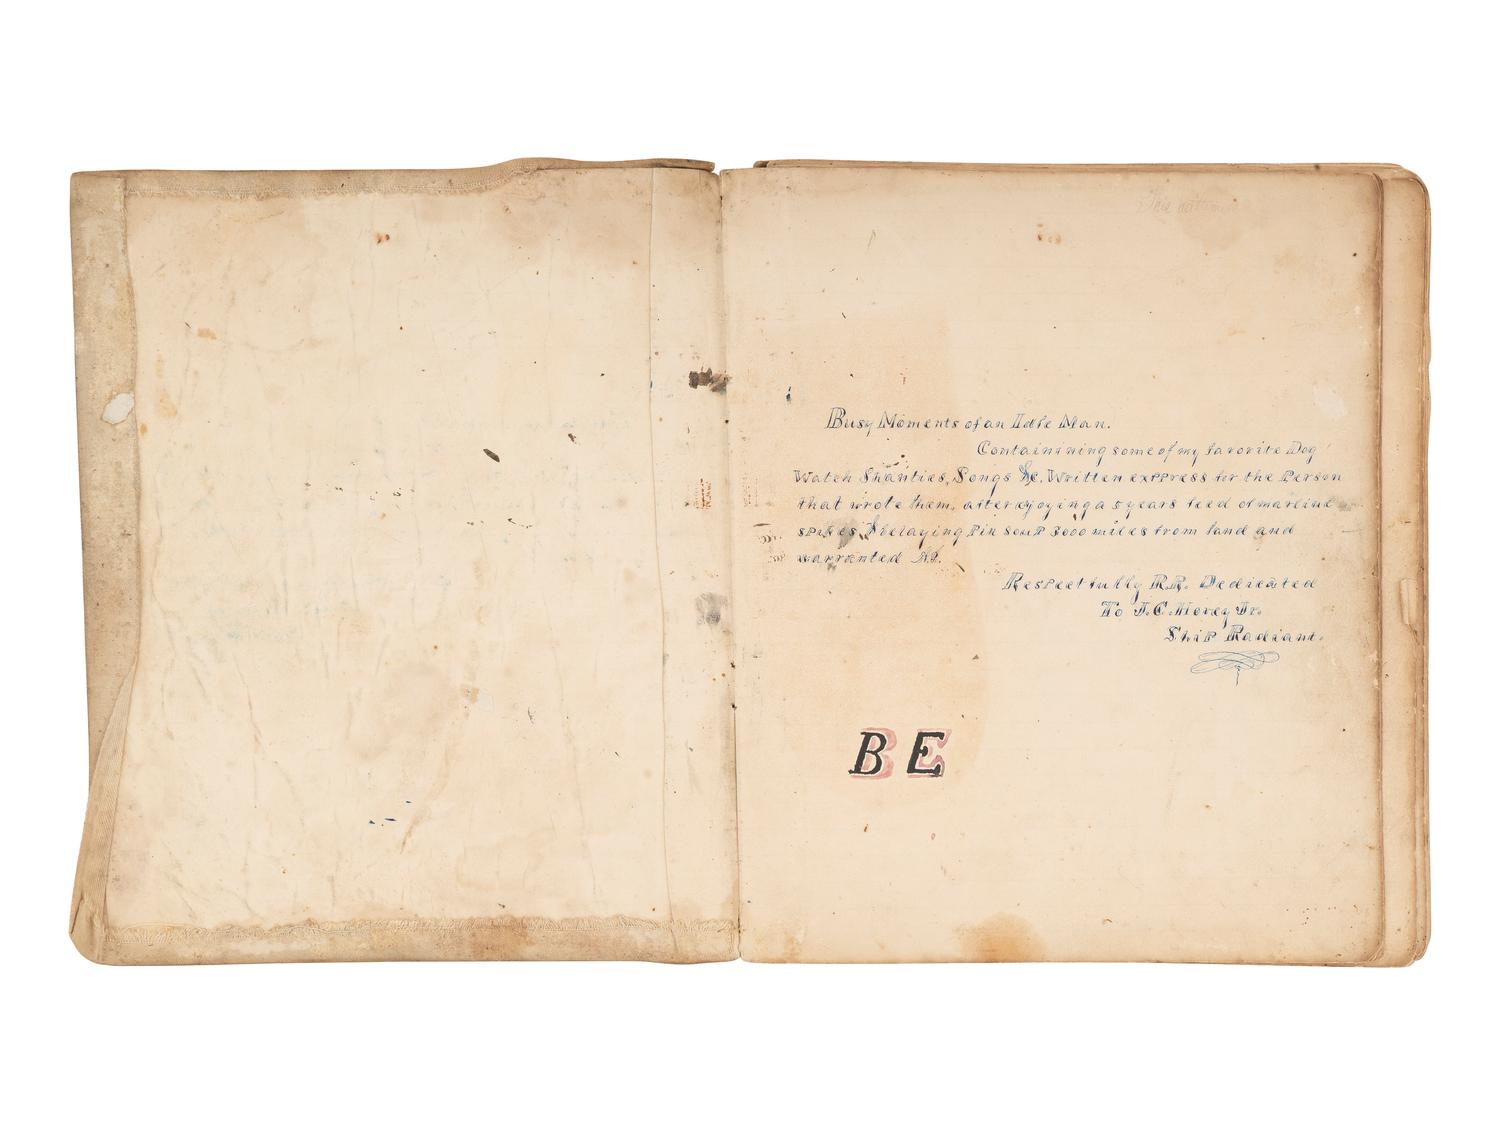 Busy Moments of an Idle Man.
Containining some of my favorite Dog
Watch Shanties, Songs &c. Written exppress for the Person
that wrote them. after enjoying a 5 years feed of marline
spikes & belaying Pin Soup 3000 miles from land and
warranted
Respectfully R.R. Dedicated
To J.C. Jr.
Ship Radiant.
BE